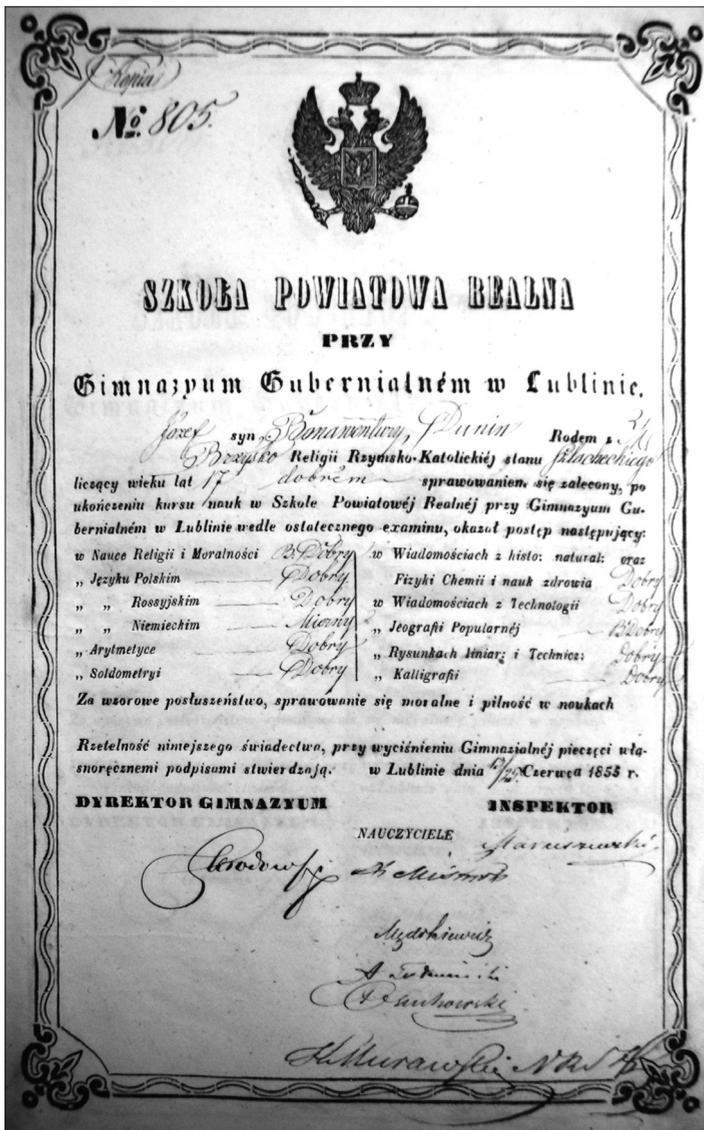 Kopia
No. 805.
SZKOŁA POWIATOWA REALNA
PRZY
Gimnazyum Gubernialném w Lublinie.
Józef syn Bonawentury, Dunin Rodem z
Brzysko Religii Rzymsko-Katolickiéj stanu Szlacheckiego
liczący wieku lat 17 dobrém sprawowaniem się zalecony, po
ukończeniu kursu nauk w Szkole Powiatowéj Realnéj przy Gimnazyum Gu-
bernialném w Lublinie wedle ostatecznego examinu, okazał postęp następujący:
w Nauce Religii i Moralności B. Dobry
„ Języku Polskim Dobry
„ „ Rossyjskim Dobry
„ „ Niemieckim Mierny
„ Arytmetyce Dobry
„ Soldometryi Dobry
w Wiadomościach z histo: natural: oraz
Fizyki Chemii i nauk zdrowia Dobry
w Wiadomościach z Technologii Dobry
„ Jeografii Popularnéj B Dobry
„ Rysunkach liniar: i Technicz: Dobry
„ Kalligrafii Dobry
Za wzorowe posłuszeństwo, sprawowanie się moralne i pilność w naukach
Rzetelność niniejszego świadectwa, przy wyciśnieniu Gimnazialnéj pieczęci wła-
snoręcznemi podpisami stwierdzają. w Lublinie dnia Czerwca 1855 r.
DYREKTOR GIMNAZYUM INSPEKTOR
NAUCZYCIELE